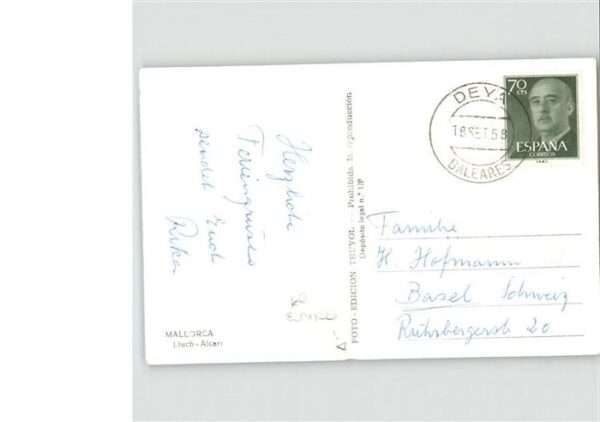 Herzliche
Feriengrüsse
sendet Euch
MALLORCA
Lluch-Alcari
FOTO-EDICION TRUYOL - Prohibida la reproducción
Depósito legal n.º
70
CTS
ESPAÑA
CORREOS
DEYA
18 SET 58
BALEARES
Familie
H Hofmann
Basel Schweiz
20